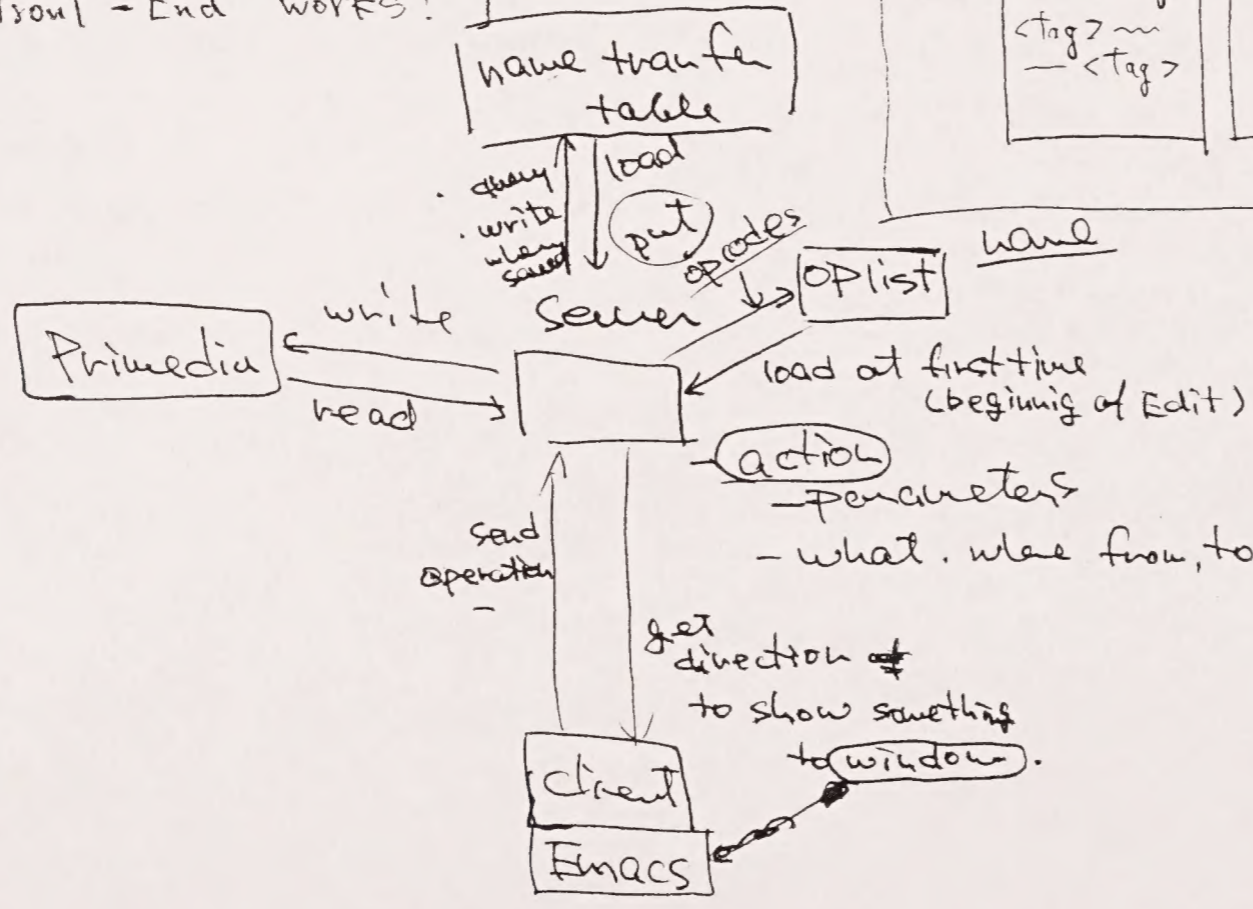 - End works!
<tag> ~
— <tag>
name tranfer
table
. query
. write
when
saved
load
put
opcodes
OPlist
name
Server
write
read
Primedia
load at first time
(beginnig of Edit)
- action
- parameters
- what. where from, to
send
operation
-
get
direction
to show something
to window.
client
Emacs